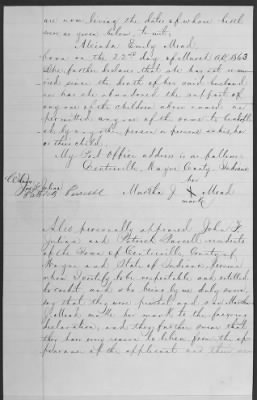 are now living the dates of whose birth
are as given below, to wit:
Alcinda Emily Mead,
born on the 22nd day of March A.D. 1863
She further declares that she has not remar-
ried since the death of her said husband
nor has she abandoned the support of
any one of the children above named or
permitted any one of the same to be
by any other person or persons as his, her
or their child.
My Post Office address is as follows:
Centreville, Wayne County, Indiana
her
Attest
Jno. F. Julian
Patrick Purcell
Martha J. X Mead
mark
Also personally appeared John F.
Julian and Patrick Purcell residents
of the town of Centreville, County of
Wayne and State of Indiana, persons
whom I certify to be respectable and entitled
to credit and who being by me duly sworn,
say that they were present and saw Martha
J. Mead make her mark to the foregoing
declaration, and they further swear that
they have every reason to believe from the ap-
pearance of the applicant and their